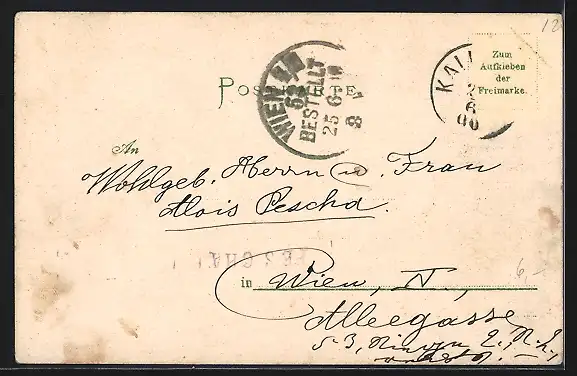 12
Zum
Aufkleben
der
Freimarke.
POSTKARTE
WIEN
BESTELLT
25 6
8
KAL
6
00
An
Wohlgeb. Herrn u. Frau
Alois Pescha.
PESCHA
6,-
in Wien, IV.,
Alleegasse
53,